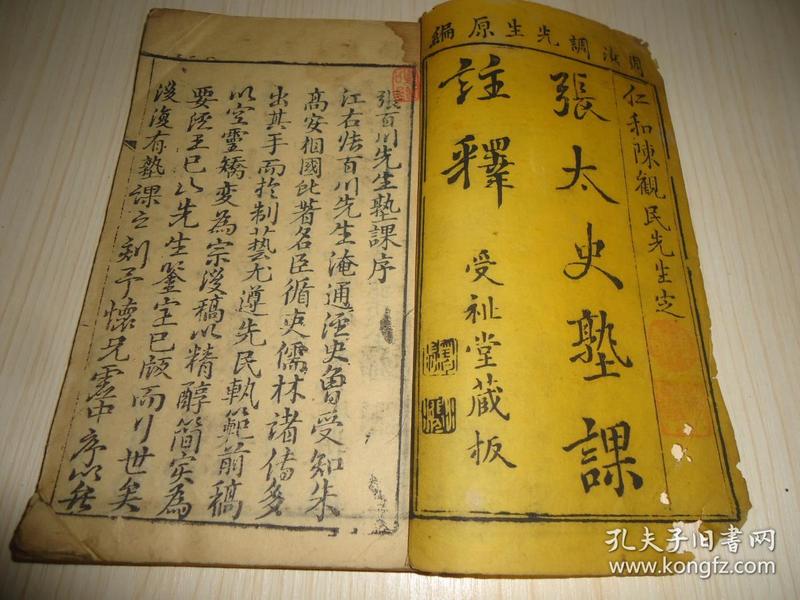 調先生原編
仁和陳觀民先生定
張太史塾課
註釋
受祉堂蔵板
張百川先生塾課序
江右張百川先生淹通經史魯受知朱
高安相國此著名臣循吏儒林諸傳多
出其手而於制藝尤遵先民軌範前稿
以空靈矯變為宗後稿以精醇簡实為
要經王已山先生鑒定已版而行世矣
後復有塾課之刻予懷兄雲中序以
孔夫子旧书网
www.kongfz.com